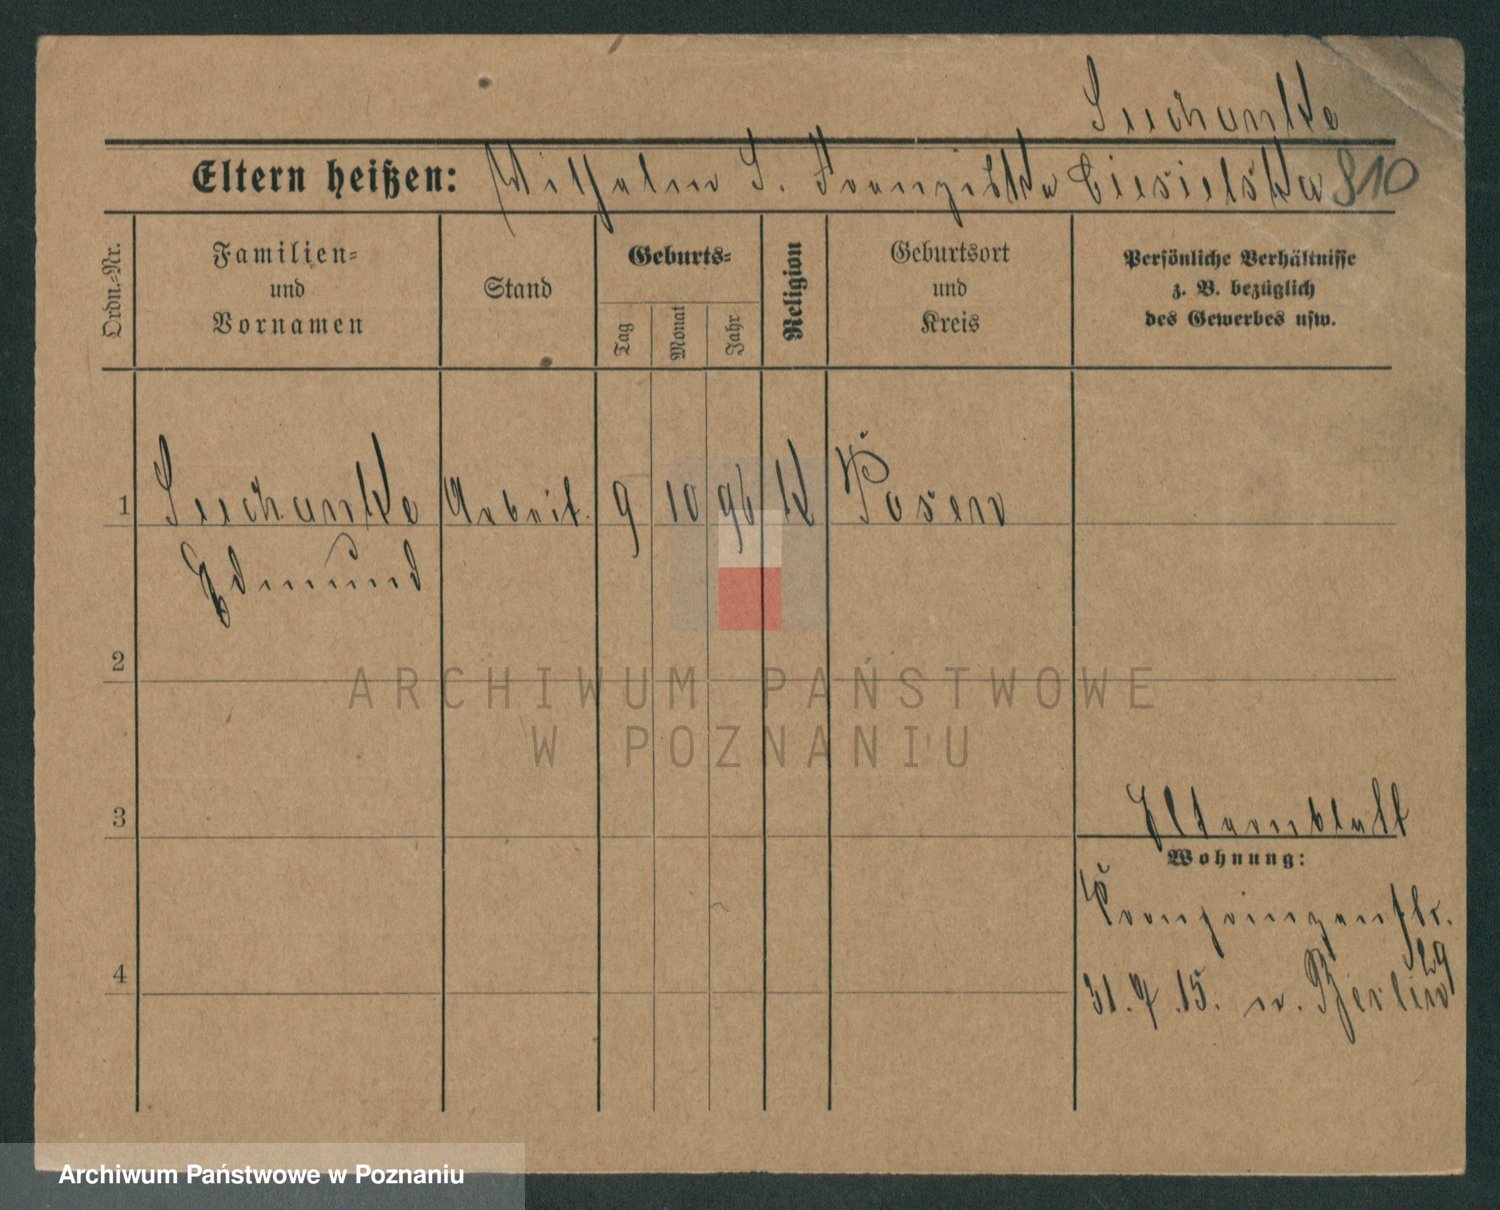 Suchanke
Eltern heißen: Wilhelm S. Franziska Ciesielska 810
Ordn.-Nr.
Familien-
und
Vornamen
Stand
Geburts-
Tag
Monat
Jahr
Religion
Geburtsort
und
Kreis
Persönliche Verhältnisse
z. B. bezüglich
des Gewerbes usw.
1 Arbeit. 9 10 96 K Posen
Edmund
2
ARCHIWUM PAŃSTWOWE
W POZNANIU
3
Elternblatt
Wohnung:
Kronprinzenstr.
29
4
31.7.15. n. Berlin
Archiwum Państwowe w Poznaniu